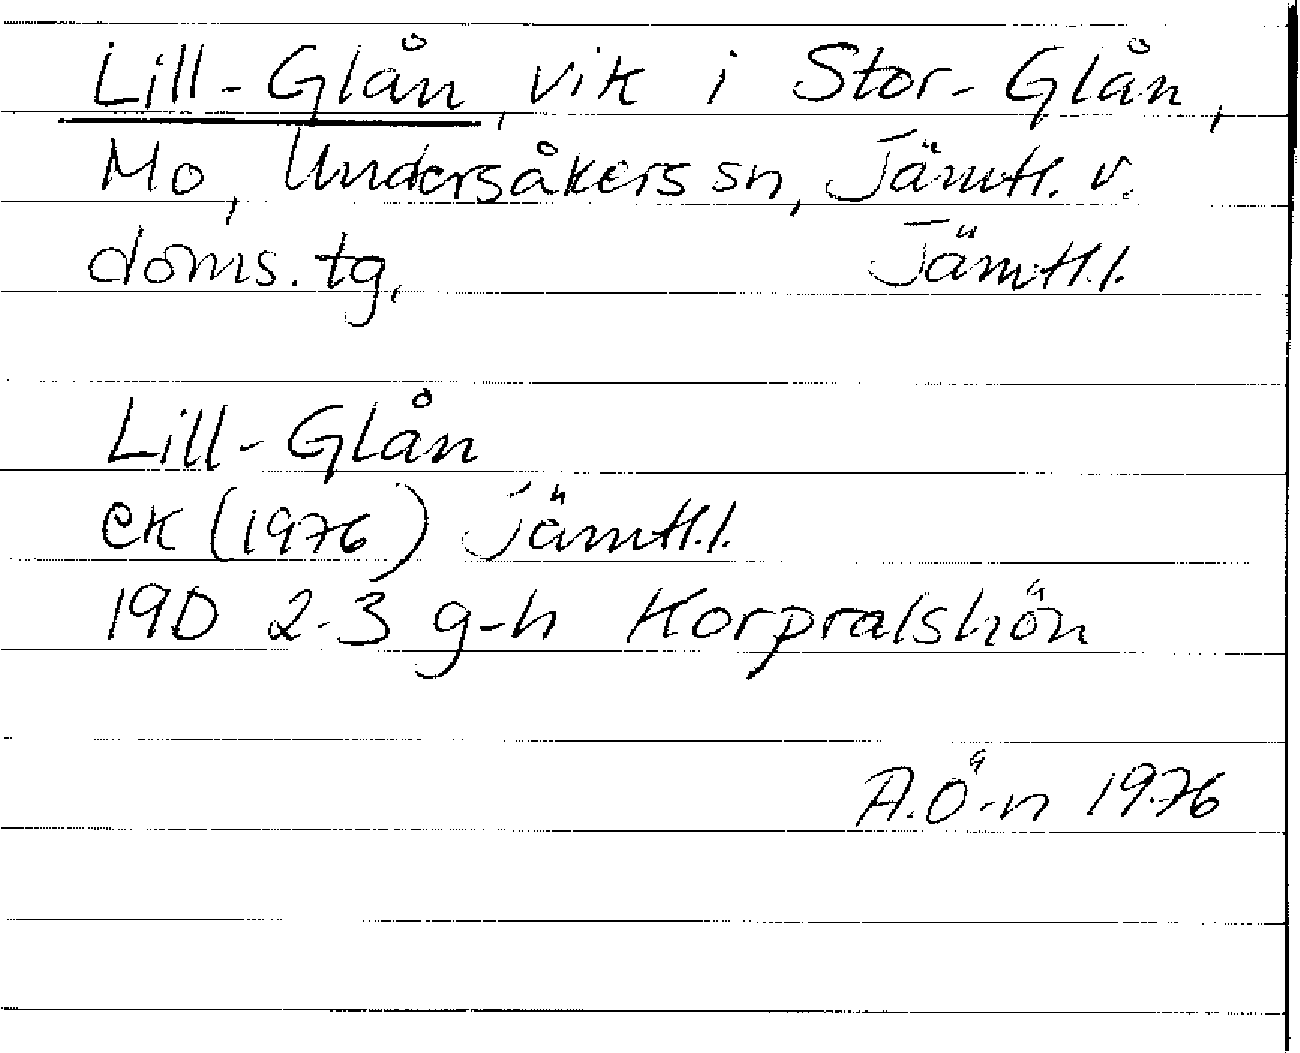 Lill-Glån, vik i Stor-Glån,
Mo, Undersåkers sn, Jämtl. v.
doms. tg. Jämtl.l.
Lill-Glån
ek (1976) Jämtl.l.
19D 2-3 g-h Korpralshön
A.Ö-n 1976